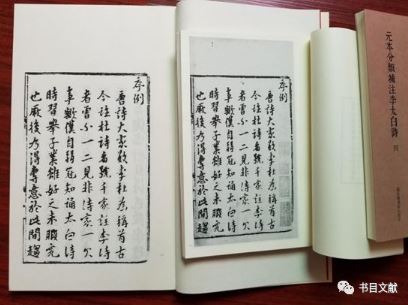 序例
唐詩大家數李杜為稱首古
今注杜詩者號千家注李詩
者曾不一二見非詩家一欠
事歟僕自弱冠知誦太白詩
時習舉子業雖好之未暇究
也厥後乃得專意於此間趨
序例
唐詩大家數李杜為稱首古
今注杜詩者號千家注李詩
者曾不一二見非詩家一欠
事歟僕自弱冠知誦太白詩
時習舉子業雖好之未暇究
也厥後乃得專意於此間趨
元本分類補注李太白詩 四
书目文献